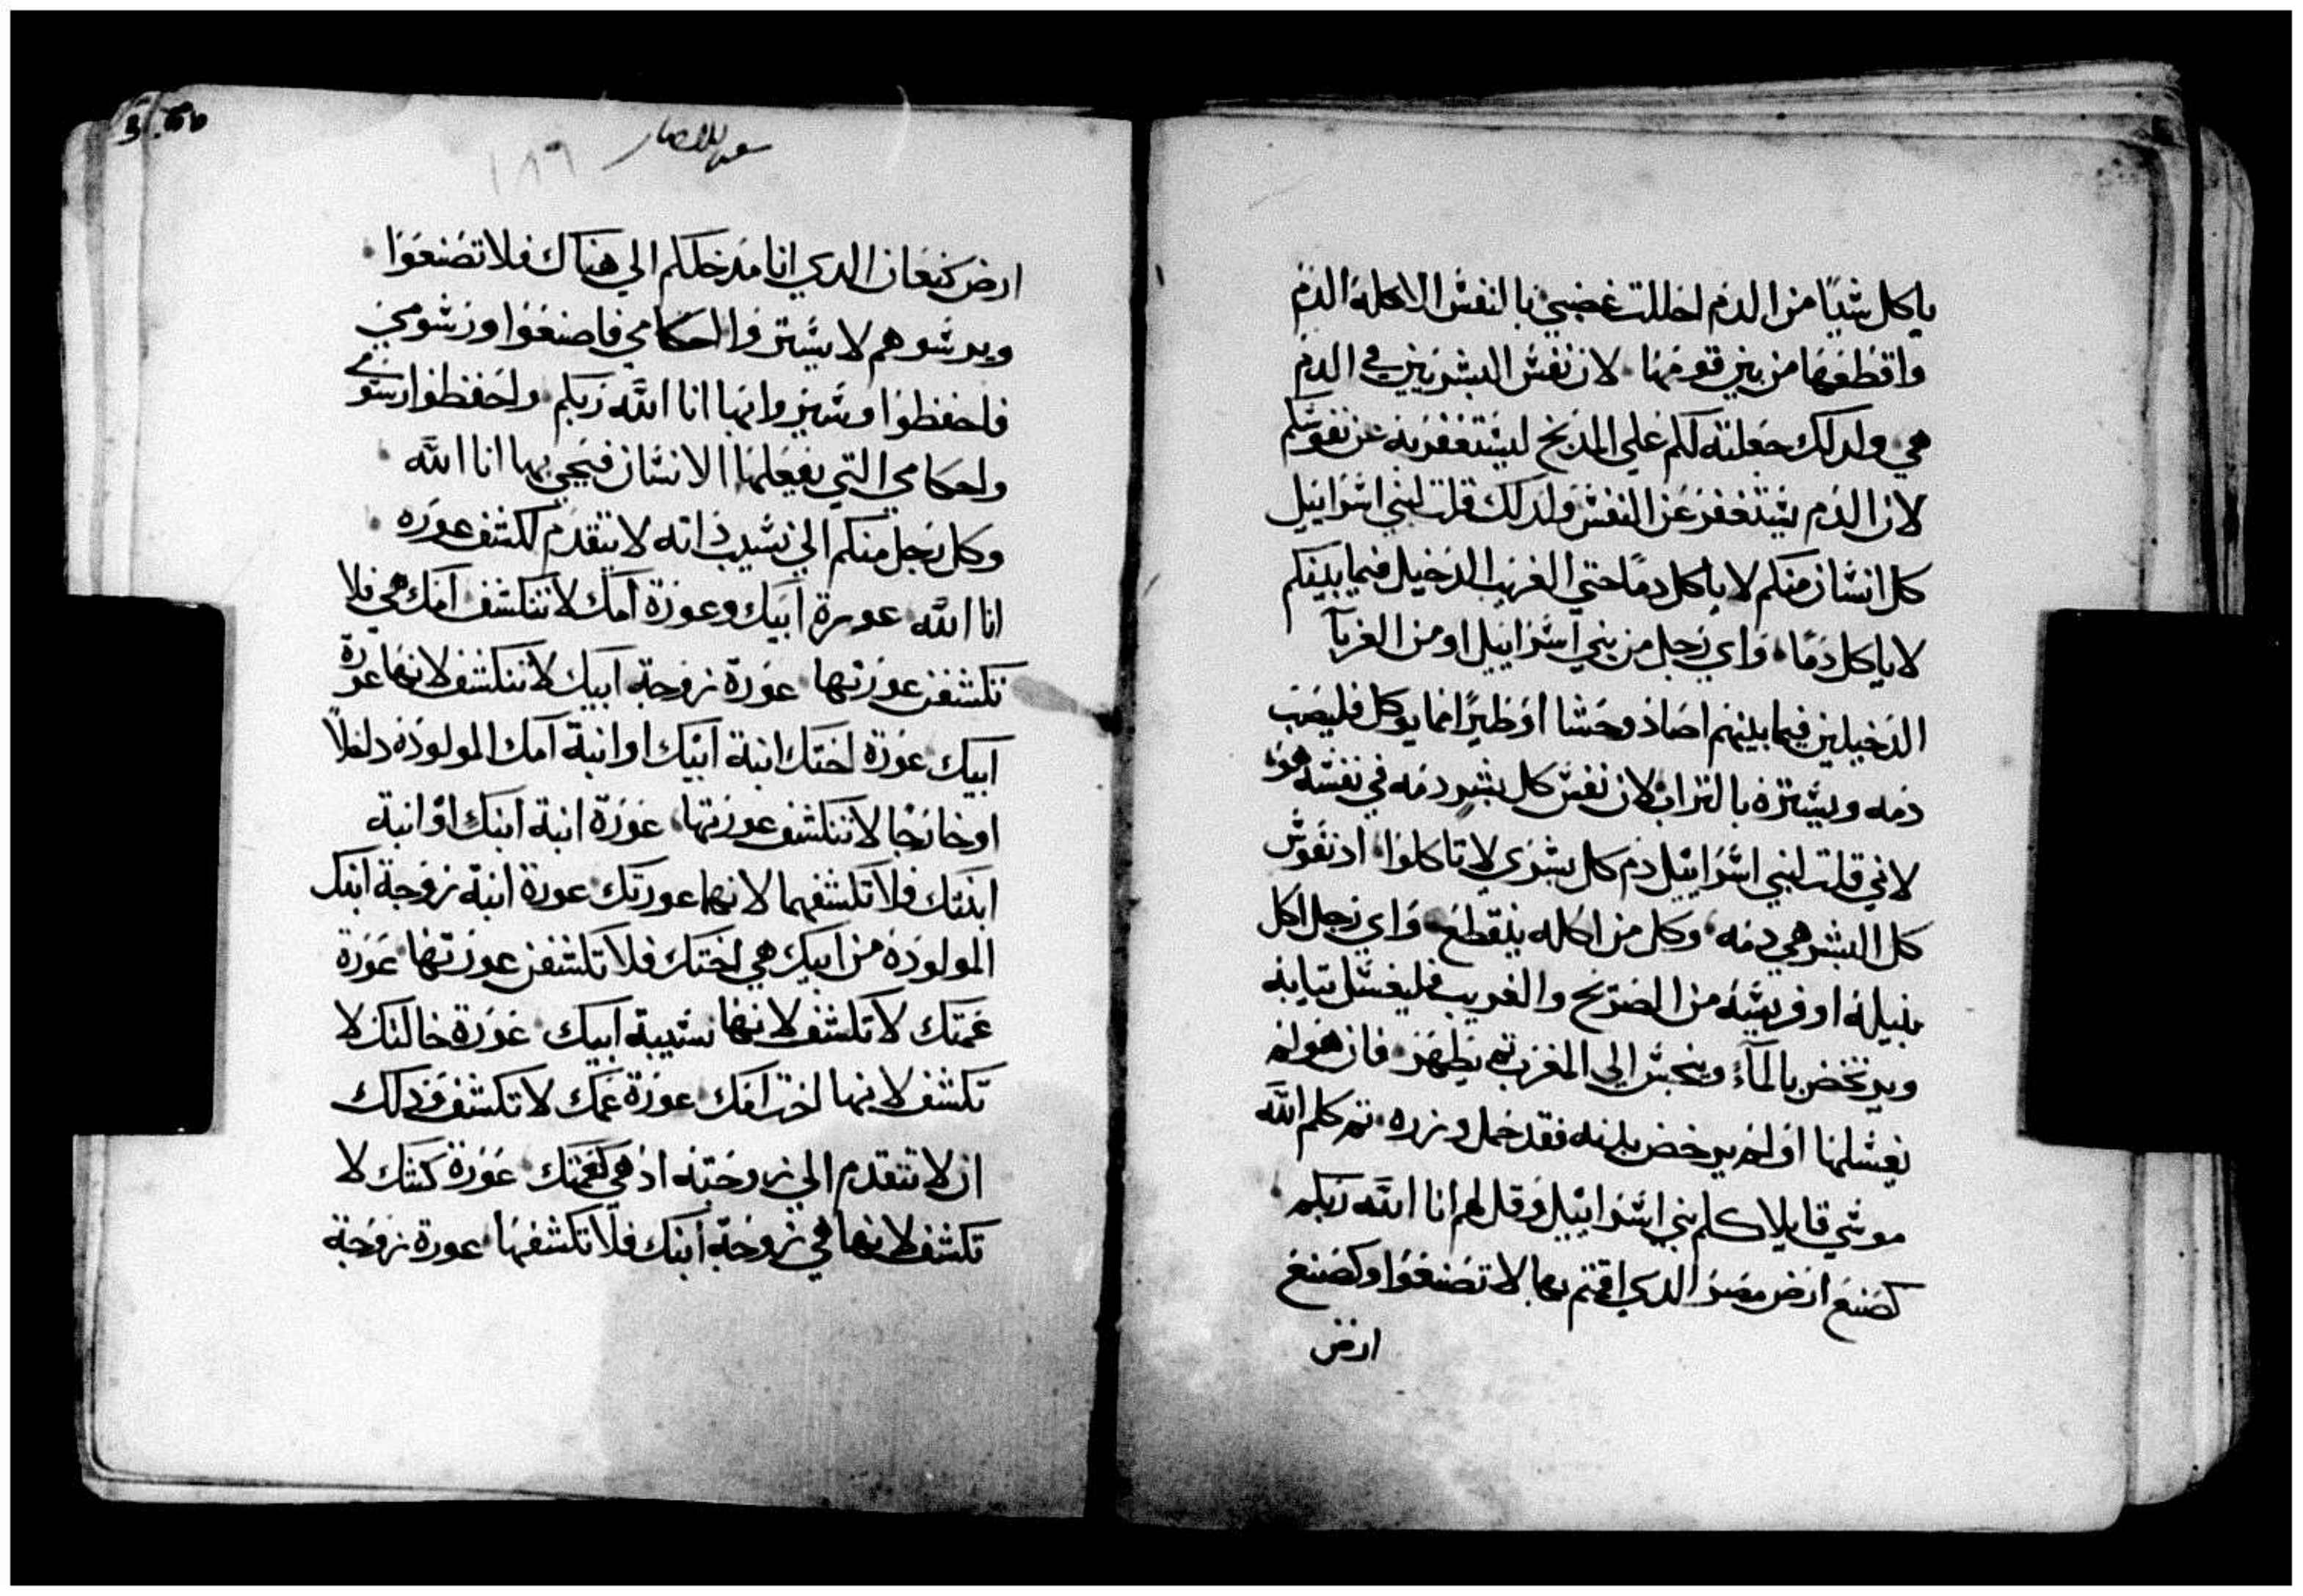 ياكل شيًا من الدم احللت غضبي بالنفس الاكله الدم
واقطعها من بين قومها لان نفس البشريين في الدم
هي ولدلك جعلته لكم علي المدبح ليستغفر به عن نفوسكم
لان الدم يستغفر عن النفس ولدلك قلت لبني اسراييل
كل انسان منكم لا ياكل دمًا حتي الغريب الدخيل فيما بينكم
لا ياكل دمًا واي رجل من بني اسراييل او من الغربآ
الدخيلين فيما بينهم اصاد وحشا او طيرًا مما يوكل فليصب
دمه ويستره بالتراب لان نفس كل بشر دمه في نفسه هو
لاني قلت لبني اسراييل دم كل بشري لا تاكلوا اد نفوس
كل البشر هي دمه وكل من اكله ينقطع واي رجل اكل
نبيله او فريسه من الصريح والغريب فليغسل تيابه
ويرتخض بالمآء وينجس الي المغرب تم يطهر فان هو لم
يغسلها او لم يرخض بدنه فقد حمل وزره تم كلم اللّه
موسي قايلا كلم بني اسراييل وقل لهم انا اللّه ربكم
كصنع ارض مصر الدي اقمتم بها لا تصنعوا وكصنع
ارض
١٨٩
ارض كنعان الدي انا مدخلكم الي هناك فلا تصنعوا
وبرسوهم لا يسيروا احكامي فاصنعوا ورسومي
فاحفظوا وسيروا بها انا اللّه ربكم واحفظوا رسومي
واحكامي التي يفعلها الانسان فيحيي بها انا اللّه
وكل رجل منكم الي نسيب داته لا يتقدم لكشف عوره
انا اللّه عورة ابيك وعورة امك لا تنكشف امك هي فلا
تكشفن عورتها عورة زوجة ابيك لا تنكشف لانها عورة
ابيك عورة اختك ابنة ابيك او ابنة امك المولوده داخلًا
او خارجا لا تنكشف عورتها عورة ابنة ابنك او ابنة
ابنتك فلا تكشفهما لانها عورتك عورة ابنة زوجة ابيك
المولوده من ابيك هي اختك فلا تكشفن عورتها عورة
عمتك لا تكشف لانها نسيبة ابيك عورة خالتك لا
تكشف لانها اخت امك عورة عمك لا تكشف ودلك
ان لا تتقدم الي زوجته اد هي كعمتك عورة كنتك لا
تكشف لانها هي زوجة ابنك فلا تكشفها عورة زوجة